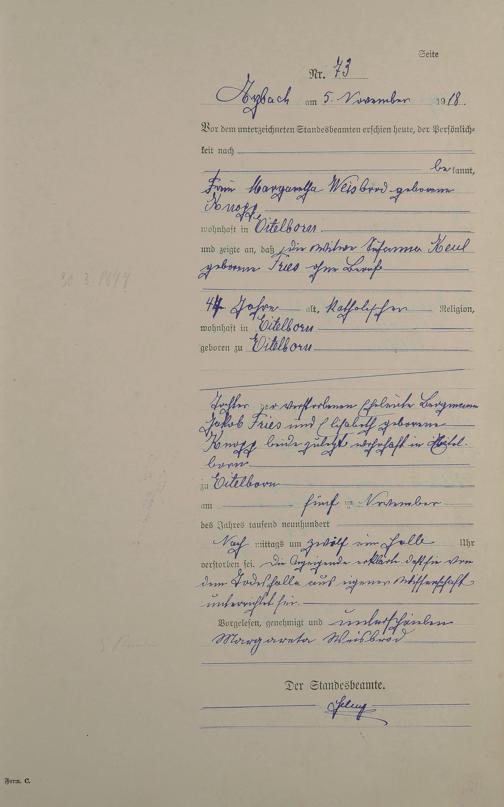 Seite
Nr. 73
Arzbach am 5. November 1918.
Vor dem unterzeichneten Standesbeamten erschien heute, der Persönlich-
keit nach
be kannt,
Frau Margaretha Weisbrod geborene
Knopp
wohnhaft in Eitelborn
und zeigte an, daß die Witwe Susanna Keul
geborene Fries ohne Beruf
30.3.1874
44 Jahre alt, katholischer Religion,
wohnhaft in Eitelborn
geboren zu Eitelborn
Tochter der verstorbenen Eheleute Bergmann
Jakob Fries und Elisabeth geborene
Knopp beide zuletzt wohnhaft in Eitel-
born
zu Eitelborn
am fünf ten November
des Jahres tausend neunhundert
Nach mittags um zwölf ein halb Uhr
verstorben sei. Die Anzeigende erklärte daß sie von
dem Todesfalle aus eigener Wissenschaft
unterrichtet sei.
Vorgelesen, genehmigt und unterschrieben
Margareta Weisbrod
Der Standesbeamte.
Form. C.